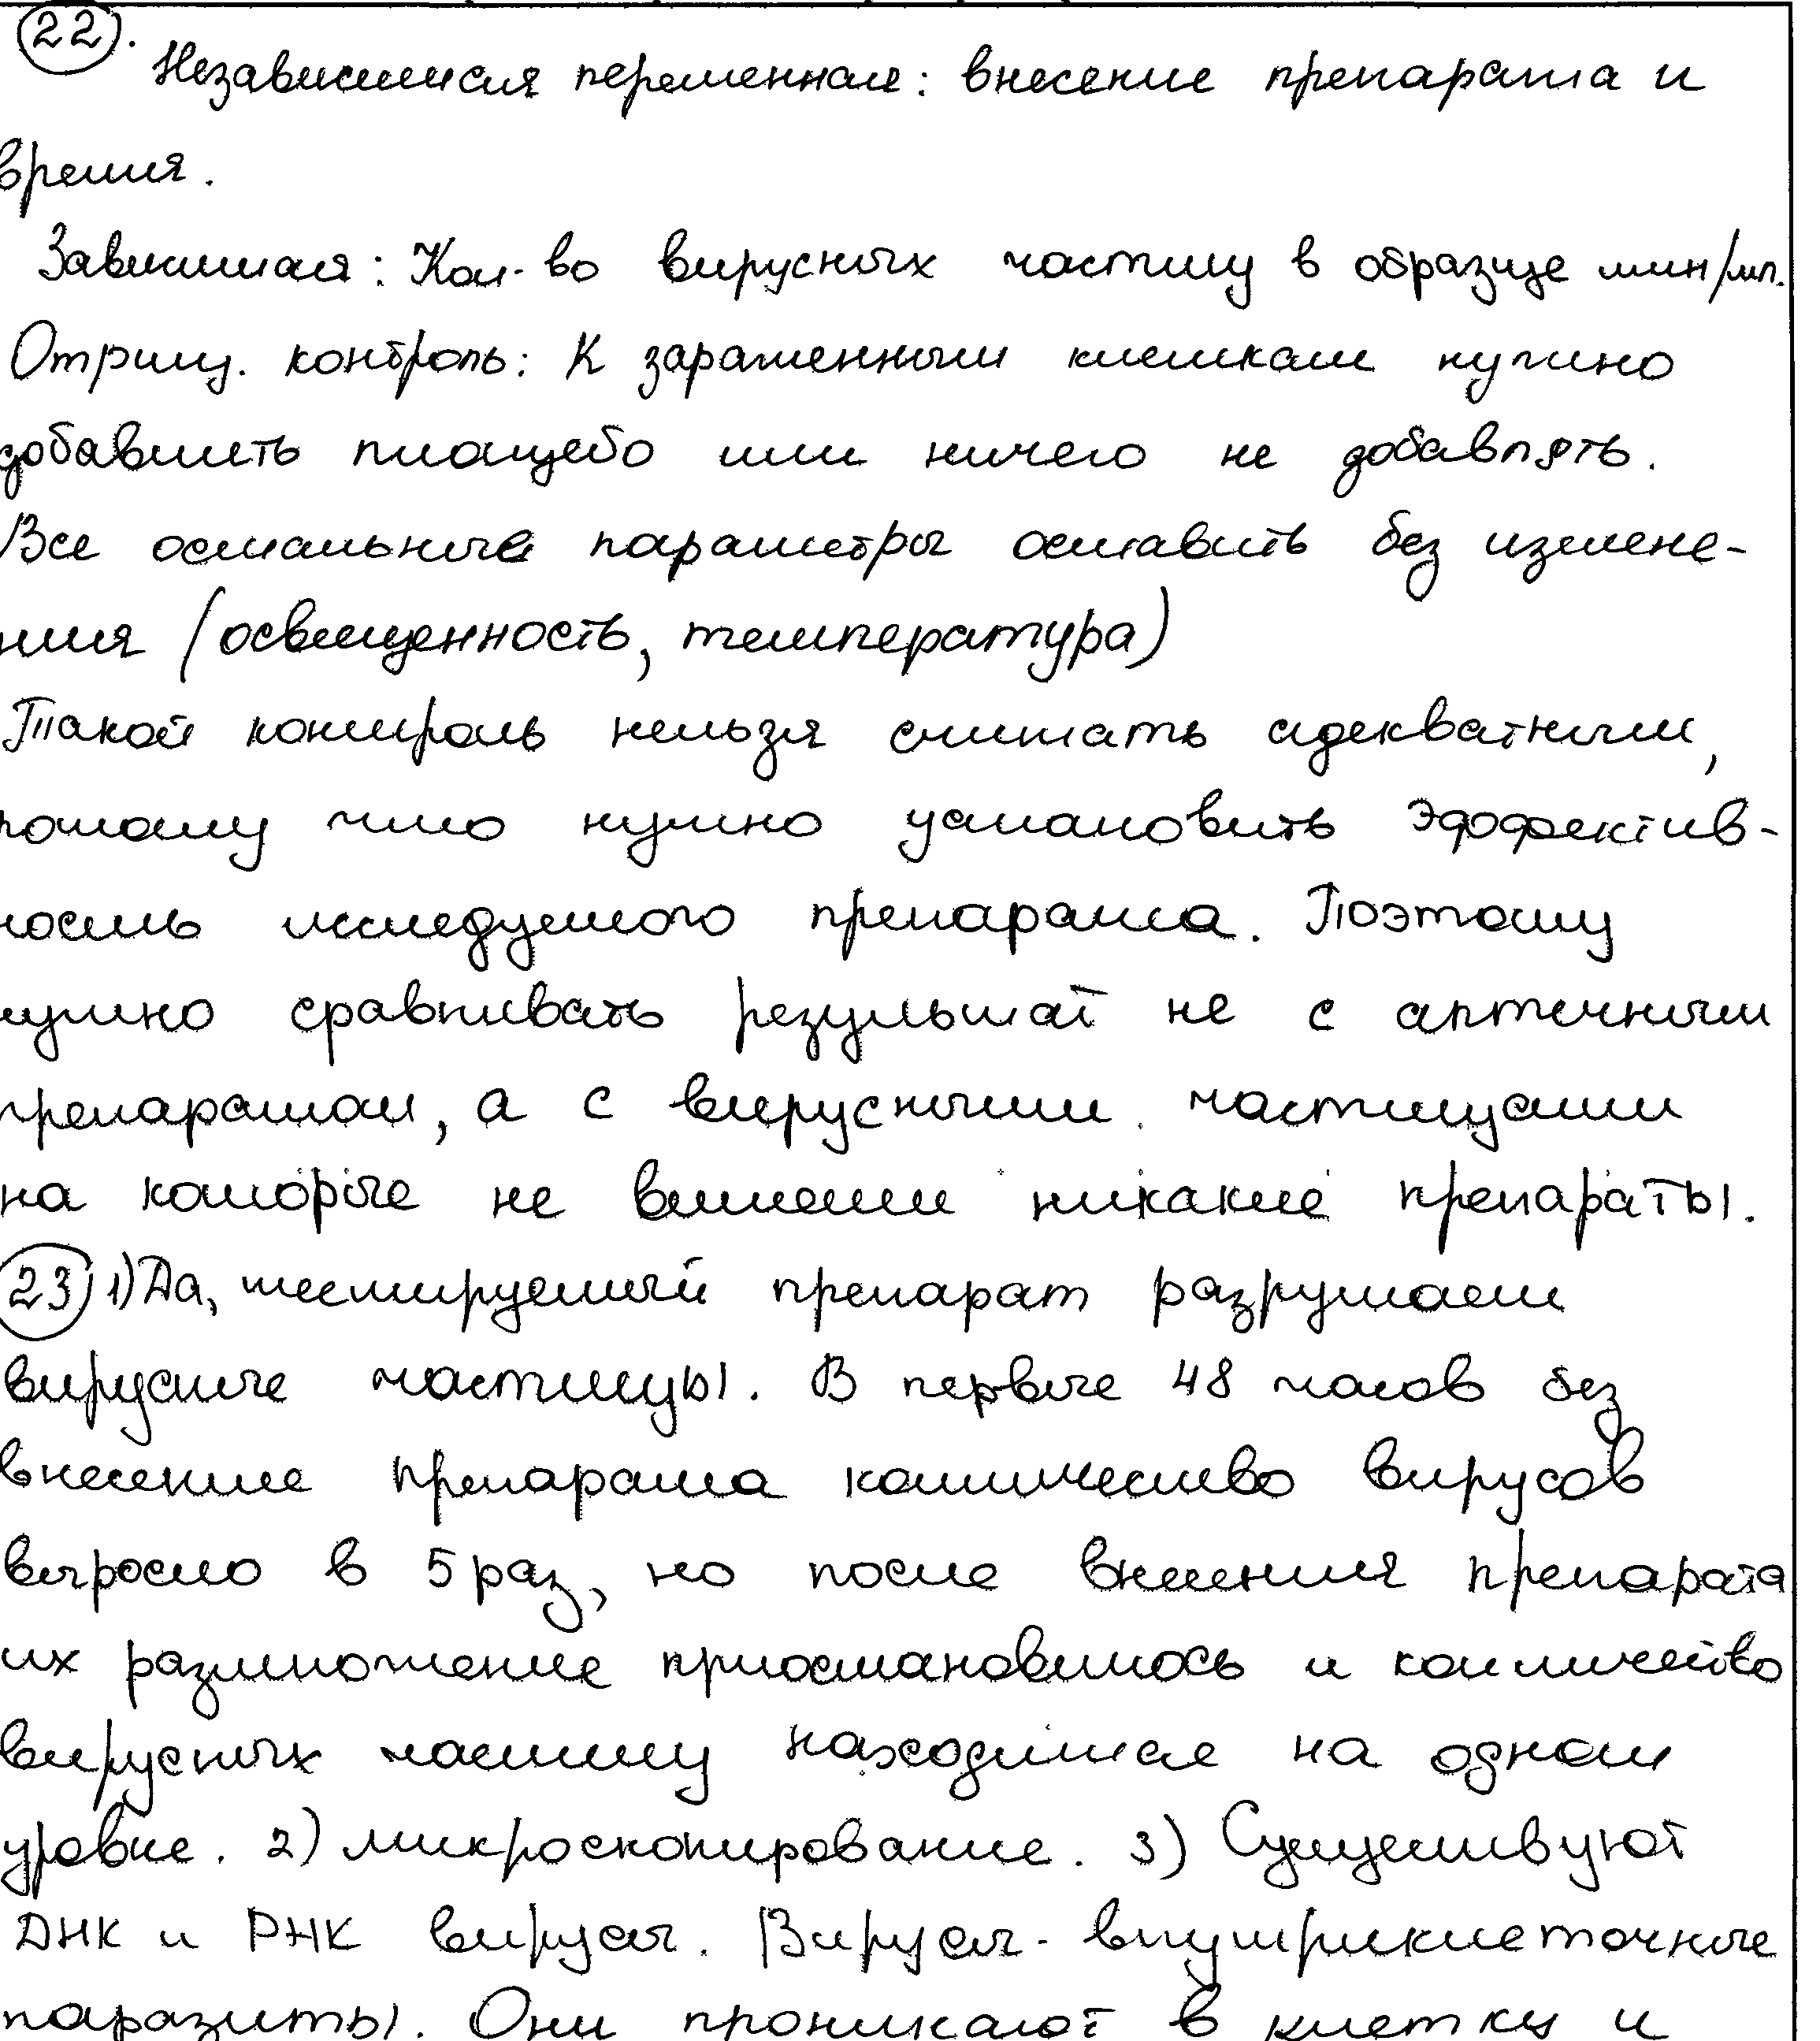 22). Независимая переменная: внесение препарата и
время.
Зависимая: Кол-во вирусных частиц в образце млн/мл.
Отриц. контроль: К зараженным клеткам нужно
добавить плацебо или ничего не добавлять.
Все остальные параметры оставить без измене-
ния (освещенность, температура)
Такой контроль нельзя считать адекватным,
потому что нужно установить эффектив-
ность исследуемого препарата. Поэтому
нужно сравнивать результат не с аптечным
препаратом, а с вирусными частицами
на которые не влияли никакие препараты.
23) 1) Да, тестируемый препарат разрушает
вирусные частицы. В первые 48 часов без
внесение препарата количество вирусов
выросло в 5 раз, но после внесения препарата
их размножение приостановилось и количество
вирусных частиц находится на одном
уровне. 2) микроскопирование. 3) Существуют
ДНК и РНК вирусы. Вирусы - внутриклеточные
паразиты. Они проникают в клетку и